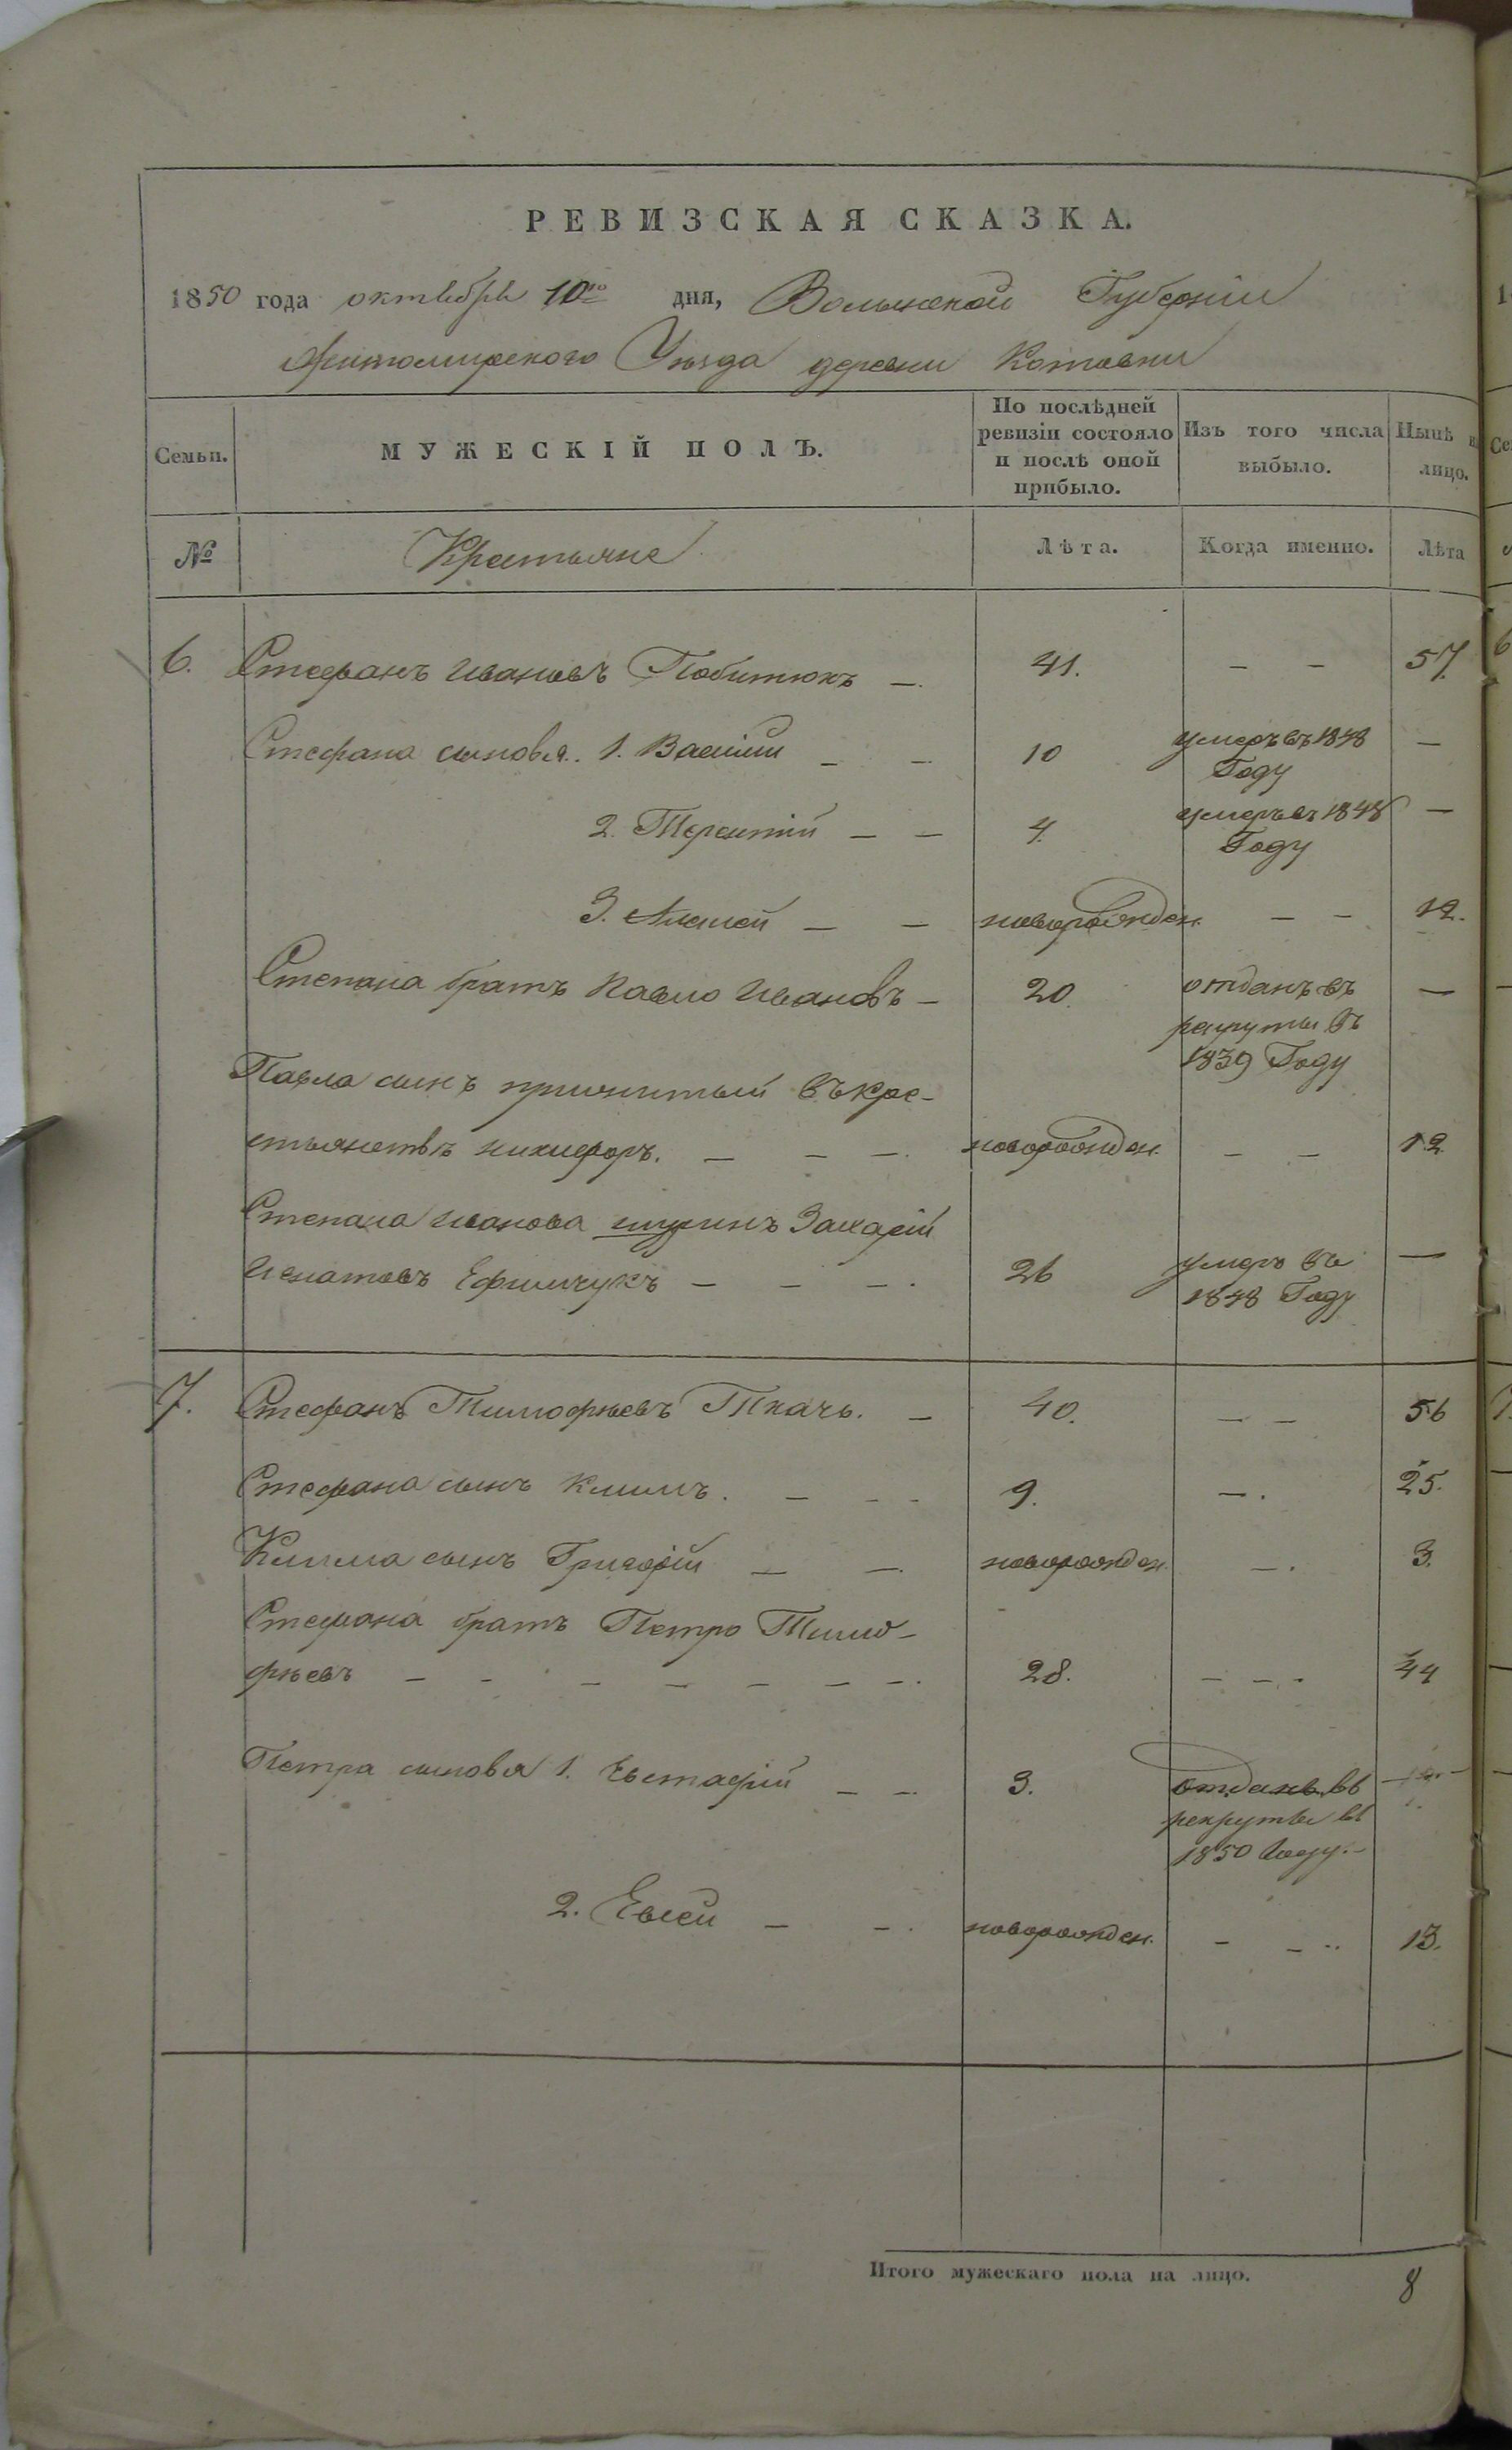 РЕВИЗСКАЯ СКАЗКА.
1850 года октября 10го дня, Волынской Губерніи
Житомирского Уѣзда деревни Котовки
Семьи. МУЖЕСКІЙ ПОЛЪ. По послѣдней ревизіи состояло и послѣ оной прибыло. Изъ того числа выбыло. Нынѣ на лицо.
№ Крестьяне Лѣта. Когда именно. Лѣта
6. Стефанъ Ивановъ Побитюкъ —. 41. — — 57.
Стефана сыновья. 1. Василий — — 10 умеръ въ 1848 —
Году
2. Терентій — — 4. умеръ въ 1848 —
Году
3. Алексей — — новорожден. — — 12.
Степана братъ Павло Ивановъ — 20. отданъ въ —
рекруты въ
1839 Году
Павла сынъ прижитый въ кре-
стьянствѣ Никифоръ. — — —. новорожден. — — 12.
Степана Иванова шуринъ Захарій
Игнатовъ Ефимчукъ — — —. 26 умеръ въ —
1848 Году
7. Стефанъ Тимофѣевъ Ткачъ. — 40. — — 56
Стефана сынъ Климъ. — — — 9. —. 25.
Клима сынъ Григорій — —. новорожден. —. 3.
Стефана братъ Петро Тимо-
фѣевъ — — — — — — —. 28. — — . 44
Петра сыновья 1. Евстафій — — 3. отданъ въ
рекруты въ
1850 Году.—
2. Евсей — —. новорожден. — — .. 13.
Итого мужескаго пола на лицо. 8